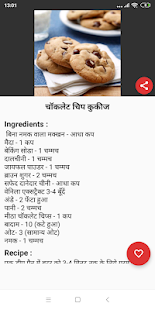 13:01
चॉकलेट चिप कुकीज
Ingredients :
बिना नमक वाला मक्खन - आधा कप
मैदा - 1 कप
बेकिंग सोडा - 1 चम्मच
दालचीनी - 1 चम्मच
जायफल पाउडर - 1 चम्मच
ब्राउन शुगर - 2 चम्मच
सफेद दानेदार चीनी - आधा कप
वेनिला एक्सट्रैक्ट 3-4 बूंदें
अंडे - 2 फेंटा हुआ
पानी - 2 चम्मच
मीठा चॉकलेट चिप्स - 1 कप
बादाम - 10 (कटे हुए)
ओट - 3 (सामान्य ओट)
नमक - 1 चम्मच
Recipe :